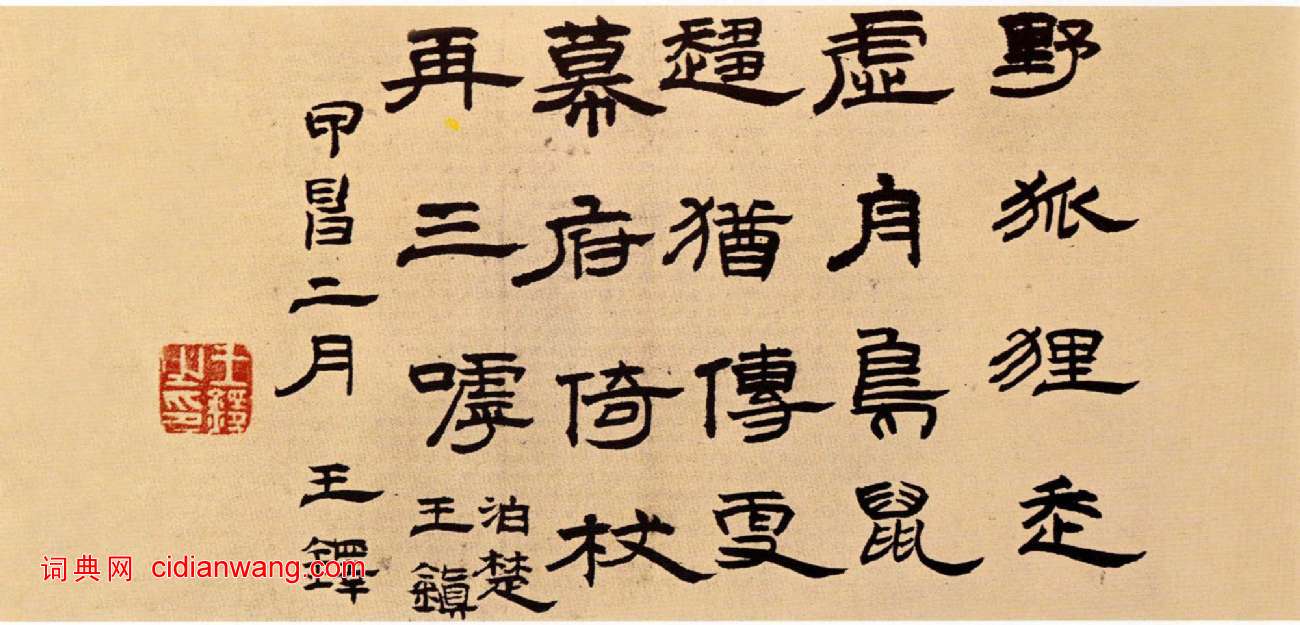 野狐狸
虛舟鳥鼠
趨猶傳更
幕府倚杖
再三嘑
泊楚
王鎮
甲申二月 王鐸
王鐸之印
词典网 cidianwang.com